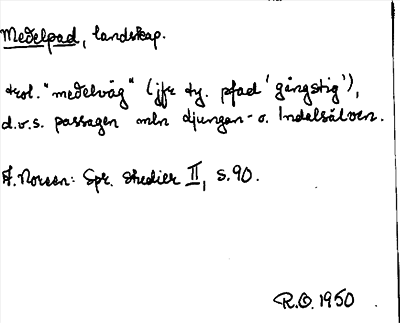 Medelpad, landskap.
trol. "medelväg" (jfr ty. pfad 'gångstig'),
d.v.s. passagen mln Ljungan- o. Indalsälven.
A. Noreen: Spr. studier II, s.90.
R.O. 1950